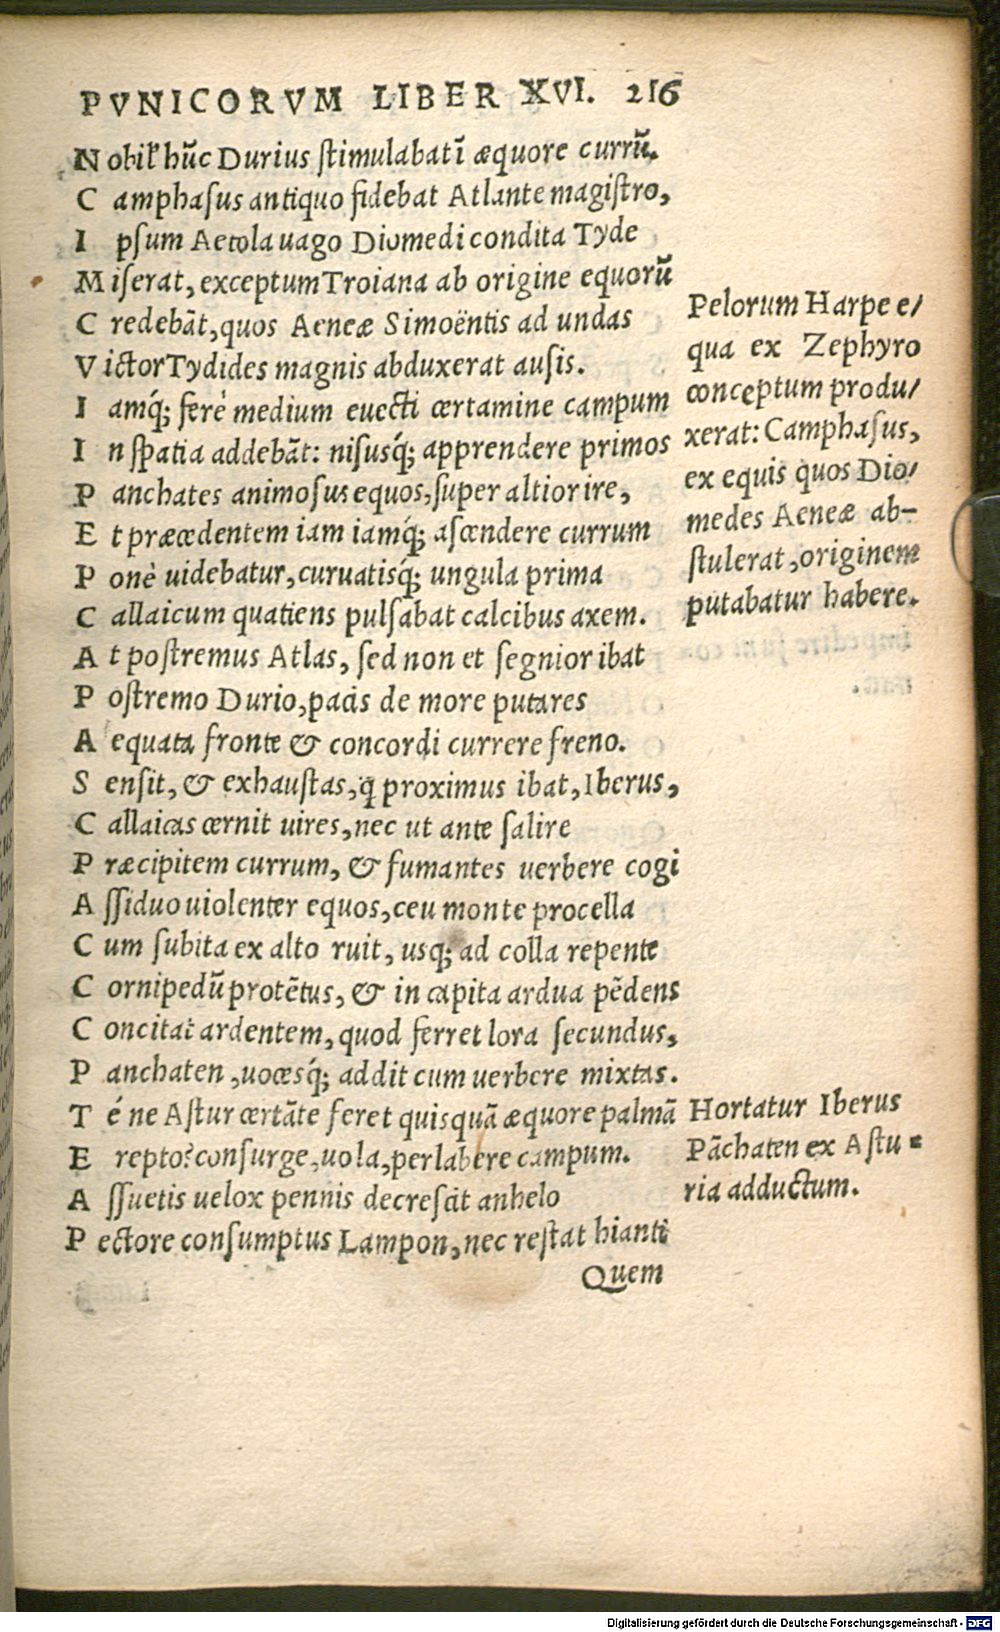 PVNICORVM LIBER XVI. 216
Nobil' hūc Durius stimulabat ī æquore currū.
Camphasus antiquo fidebat Atlante magistro,
Ipsum Aetola uago Diomedi condita Tyde
Miserat, exceptum Troiana ab origine equorū
Credebāt, quos Aeneæ Simoëntis ad undas
Victor Tydides magnis abduxerat ausis.
Iamq́; ferè medium euecti certamine campum
In spatia addebāt: nisusq́; apprendere primos
Panchates animosus equos, super altior ire,
Et præcedentem iam iamq́; ascendere currum
Ponè uidebatur, curuatisq́; ungula prima
Callaicum quatiens pulsabat calcibus axem.
At postremus Atlas, sed non et segnior ibat
Postremo Durio, pacis de more putares
Aequata fronte & concordi currere freno.
Sensit, & exhaustas, q̄ proximus ibat, Iberus,
Callaicas cernit uires, nec ut ante salire
Præcipitem currum, & fumantes uerbere cogi
Assiduo uiolenter equos, ceu monte procella
Cum subita ex alto ruit, usq; ad colla repente
Cornipedū protētus, & in capita ardua pēdens
Concitat ardentem, quod ferret lora secundus,
Panchaten, uocesq́; addit cum uerbere mixtas.
Té ne Astur certāte feret quisquā æquore palmā
Erepto? consurge, uola, perlabere campum.
Assuetis uelox pennis decrescit anhelo
Pectore consumptus Lampon, nec restat hianti
Quem
Pelorum Harpe e/
qua ex Zephyro
conceptum produ/
xerat: Camphasus,
ex equis quos Dio/
medes Aeneæ ab-
stulerat, originem
putabatur habere.
Hortatur Iberus
Pāchaten ex Astu=
ria adductum.
Digitalisierung gefördert durch die Deutsche Forschungsgemeinschaft - DFG